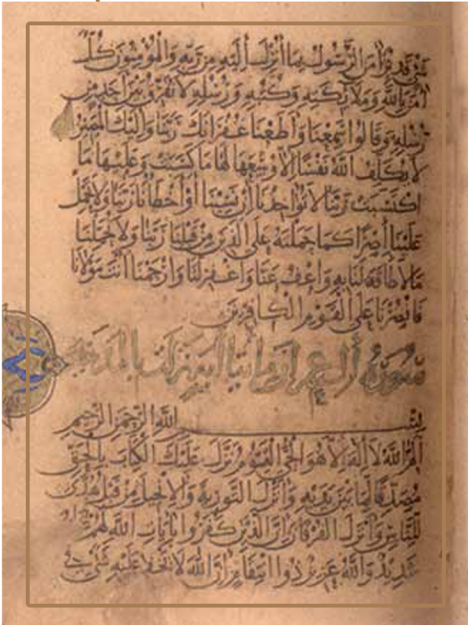 شيء قدير آمن الرسول بما أنزل إليه من ربه والمؤمنون كل
آمن بالله وملائكته وكتبه ورسله لا نفرق بين أحد من
رسله وقالوا سمعنا وأطعنا غفرانك ربنا وإليك المصير
لا يكلف الله نفسا إلا وسعها لها ما كسبت وعليها ما
اكتسبت ربنا لا تؤاخذنا إن نسينا أو أخطأنا ربنا ولا تحمل
علينا إصرا كما حملته على الذين من قبلنا ربنا ولا تحملنا
ما لا طاقة لنا به واعف عنا واغفر لنا وارحمنا أنت مولانا
فانصرنا على القوم الكافرين
سورة آل عمران مائتا آية نزلت بالمدينة
بسم الله الرحمن الرحيم
الم الله لا إله إلا هو الحي القيوم نزل عليك الكتاب بالحق
مصدقا لما بين يديه وأنزل التورية والإنجيل من قبل هدى
للناس وأنزل الفرقان إن الذين كفروا بآيات الله لهم عذاب
شديد والله عزيز ذو انتقام إن الله لا يخفى عليه شيء في